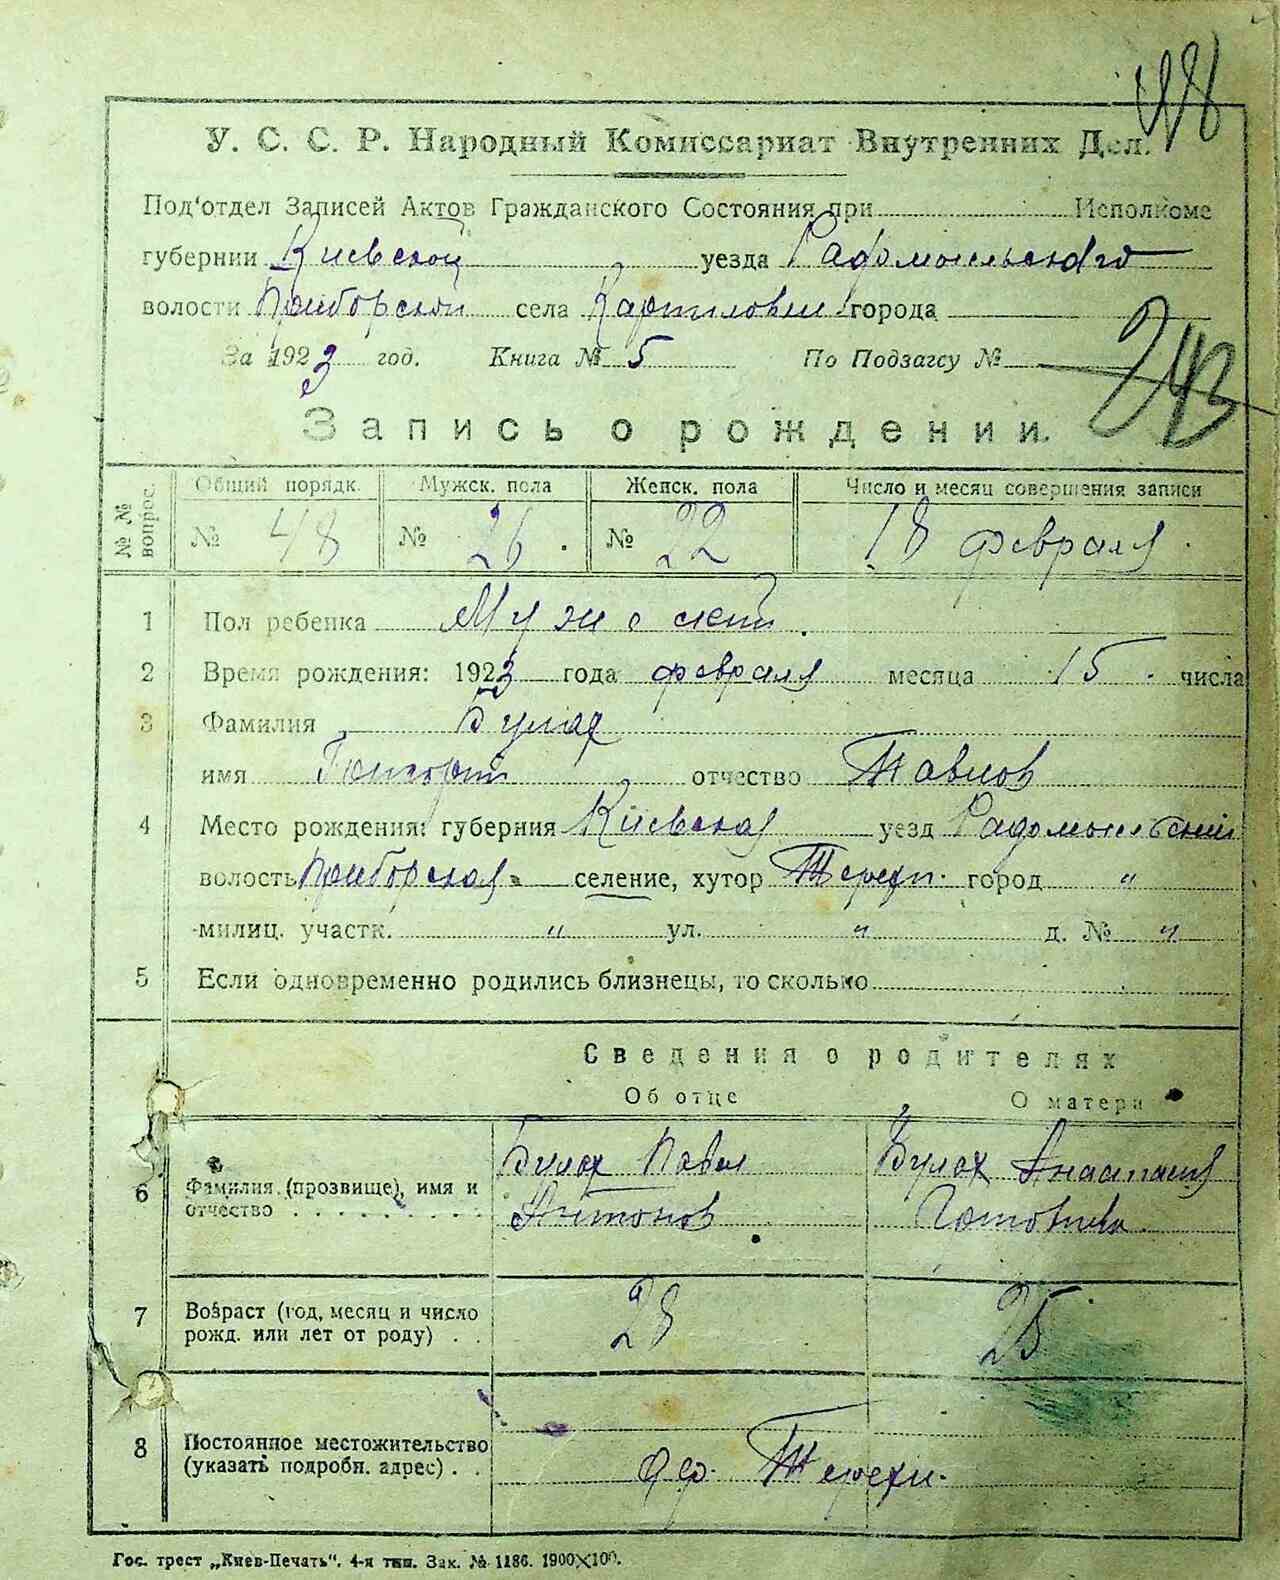 У. С. С. Р. Народный Комиссариат Внутренних Дел.
Под'отдел Записей Актов Гражданского Состояния при Исполкоме
губернии Киевской уезда Радомысльского
волости Приборской села города
За 1923 год. Книга № 5 По Подзагсу № —
243
Запись о рождении.
№ № вопрос. Общий порядк. Мужск. пола Женск. пола Число и месяц совершения записи
№ 48 № 26 . № 22 18 февраля .
1 Пол ребенка Мужской .
2 Время рождения: 1923 года февраля месяца 15 . числа
3 Фамилия Булах
имя Григорий отчество Павлов
4 Место рождения: губерния Киевская уезд Радомысльский
волость Приборская селение, хутор Терехи. город "
милиц. участк. " ул. " д. № "
5 Если одновременно родились близнецы, то сколько
Сведения о родителях
Об отце О матери
Булах Павел Булах Анастасия
6 Фамилия (прозвище), имя и
отчество . . . . . . . . . Антонов
7 Возраст (год, месяц и число 28 25
рожд. или лет от роду) . .
8 Постоянное местожительство
(указать подробн. адрес) . . дер. Терехи.
Гос. трест „Киев-Печать". 4-я тип. Зак. № 1186. 1900×100.